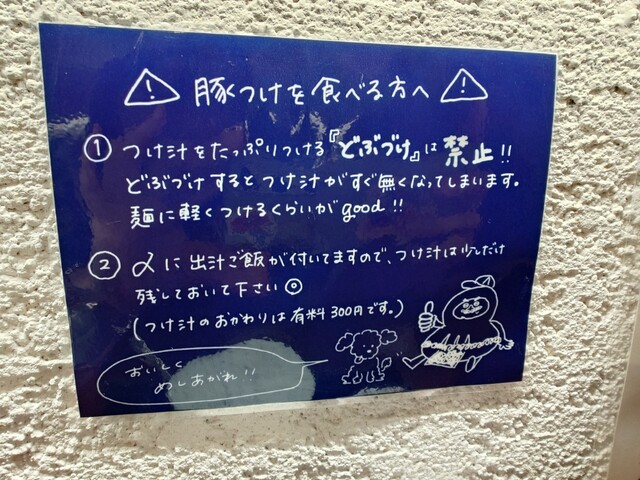 ⚠ 豚つけを食べる方へ ⚠
① つけ汁をたっぷりつける『どぶづけ』は禁止!!
どぶづけするとつけ汁がすぐ無くなってしまいます。
麺に軽くつけるくらいがgood!!
② 〆に出汁ご飯が付いてますので、つけ汁は少しだけ
残しておいて下さい◎
(つけ汁のおかわりは有料300円です。)
おいしく
めしあがれ!!